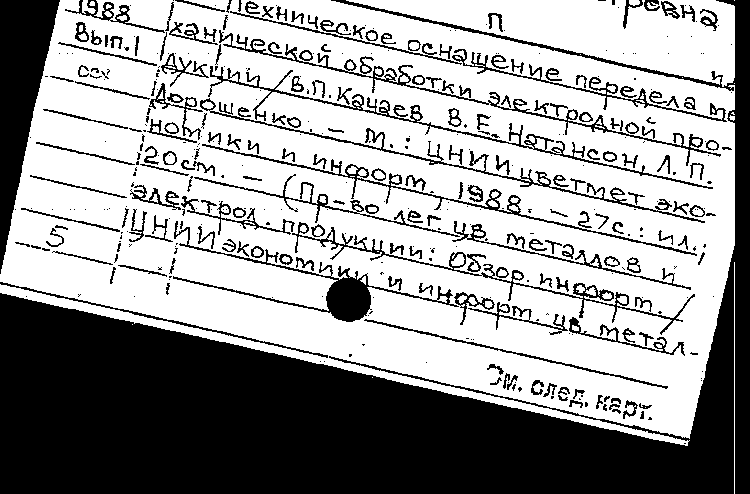 тровна
1988
П
техническое оснащение передела ме
Вып.1
ханической обработки электродной про-
дукции / В.П.Качаев, В.Е.Натансон, Л.П.
Дорошенко. – М.: ЦНИИцветмет эко-
номики и информ., 1988. – 27с.: ил.;
20см. – (Пр-во лег. цв. металлов и
электрод. продукции: Обзор. информ. /
5
ЦНИИ экономики и информ. цв. метал-
См. след. карт.